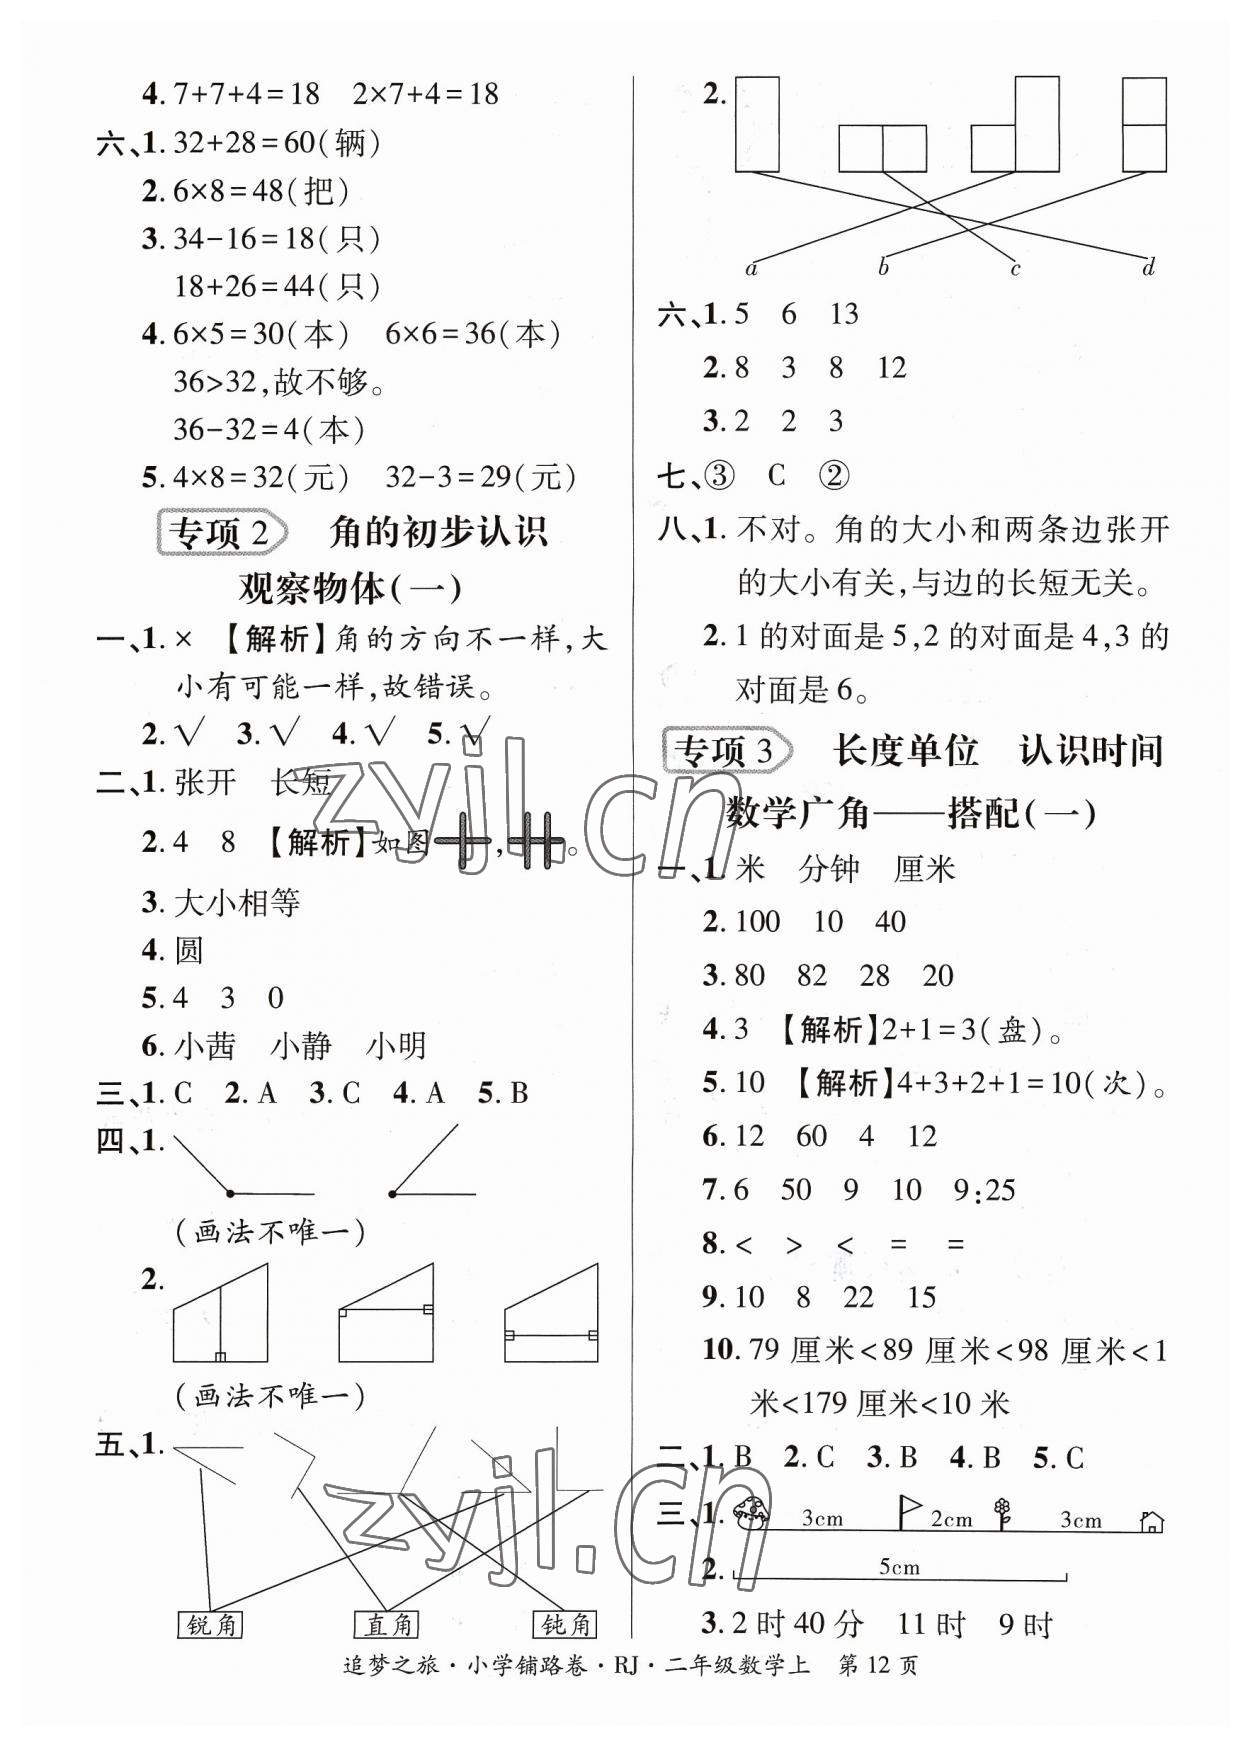 4. 7+7+4=18 2×7+4=18
六、1. 32+28=60(辆)
2. 6×8=48(把)
3. 34-16=18(只)
18+26=44(只)
4. 6×5=30(本) 6×6=36(本)
36>32,故不够。
36-32=4(本)
5. 4×8=32(元) 32-3=29(元)
专项2 角的初步认识
观察物体(一)
一、1. × 【解析】角的方向不一样,大
小有可能一样,故错误。
2. √ 3. √ 4. √ 5. √
二、1. 张开 长短
2. 4 8 【解析】如图 , 。
3. 大小相等
4. 圆
5. 4 3 0
6. 小茜 小静 小明
三、1. C 2. A 3. C 4. A 5. B
四、1.
(画法不唯一)
2.
(画法不唯一)
五、1.
锐角 直角 钝角
2.
a b c d
六、1. 5 6 13
2. 8 3 8 12
3. 2 2 3
七、③ C ②
八、1. 不对。角的大小和两条边张开
的大小有关,与边的长短无关。
2. 1的对面是5,2的对面是4,3的
对面是6。
专项3 长度单位 认识时间
数学广角——搭配(一)
一、1. 米 分钟 厘米
2. 100 10 40
3. 80 82 28 20
4. 3 【解析】2+1=3(盘)。
5. 10 【解析】4+3+2+1=10(次)。
6. 12 60 4 12
7. 6 50 9 10 9:25
8. < > < = =
9. 10 8 22 15
10. 79厘米<89厘米<98厘米<1
米<179厘米<10米
二、1. B 2. C 3. B 4. B 5. C
三、1. 3cm 2cm 3cm
2. 5cm
3. 2时40分 11时 9时
追梦之旅·小学铺路卷·RJ·二年级数学上 第12页
zyjl.cn
zyjl.cn